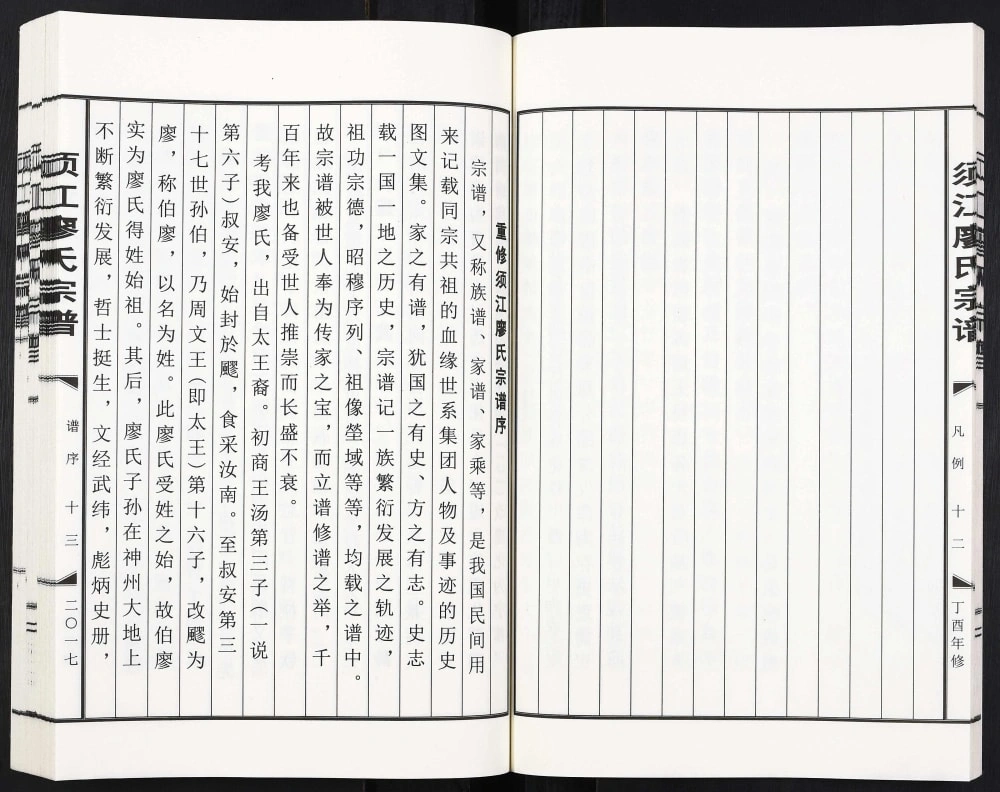 须江廖氏宗谱
凡例 十二
丁酉年修
重修须江廖氏宗谱序
宗谱，又称族谱、家谱、家乘等，是我国民间用
来记载同宗共祖的血缘世系集团人物及事迹的历史
图文集。家之有谱，犹国之有史、方之有志。史志
载一国一地之历史，宗谱记一族繁衍发展之轨迹，
祖功宗德，昭穆序列、祖像茔域等等，均载之谱中。
故宗谱被世人奉为传家之宝，而立谱修谱之举，千
百年来也备受世人推崇而长盛不衰。
考我廖氏，出自太王裔。初商王汤第三子（一说
第六子）叔安，始封於飂，食采汝南。至叔安第三
十七世孙伯，乃周文王（即太王）第十六子，改飂为
廖，称伯廖，以名为姓。此廖氏受姓之始，故伯廖
实为廖氏得姓始祖。其后，廖氏子孙在神州大地上
不断繁衍发展，哲士挺生，文经武纬，彪炳史册，
须江廖氏宗谱
谱序 十三
二〇一七